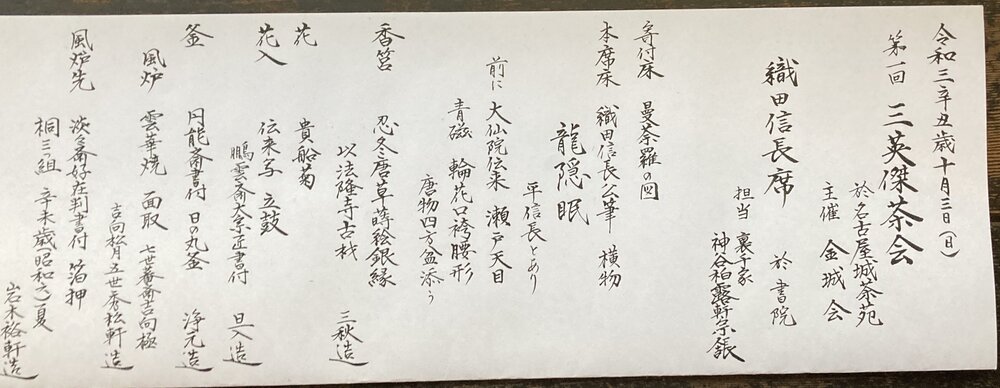 令和三辛丑歳十月三日(日)
第一回 三英傑茶会
於 名古屋城茶苑
主催 金城会
織田信長席 於 書院
担当 裏千家
神谷柏露軒宗
寄付床 曼荼羅の図
本席床 織田信長公筆 横物
龍隠眠
平信長とあり
前に 大仙院伝来 瀬戸天目
青磁 輪花口袴腰形
唐物四方盆添う
香筥 忍冬唐草蒔絵銀縁
以法隆寺古材 三秋造
花 貴船菊
花入 伝来写 立鼓
鵬雲斎大宗匠書付 旦入造
釜 円能斎書付 日の丸釜 浄元造
風炉 雲華焼 面取 七世
吉向松月五世秀松軒造
風炉先 淡々斎好在判書付 箔押
桐三組 辛未歳昭和六夏
岩木裕軒造